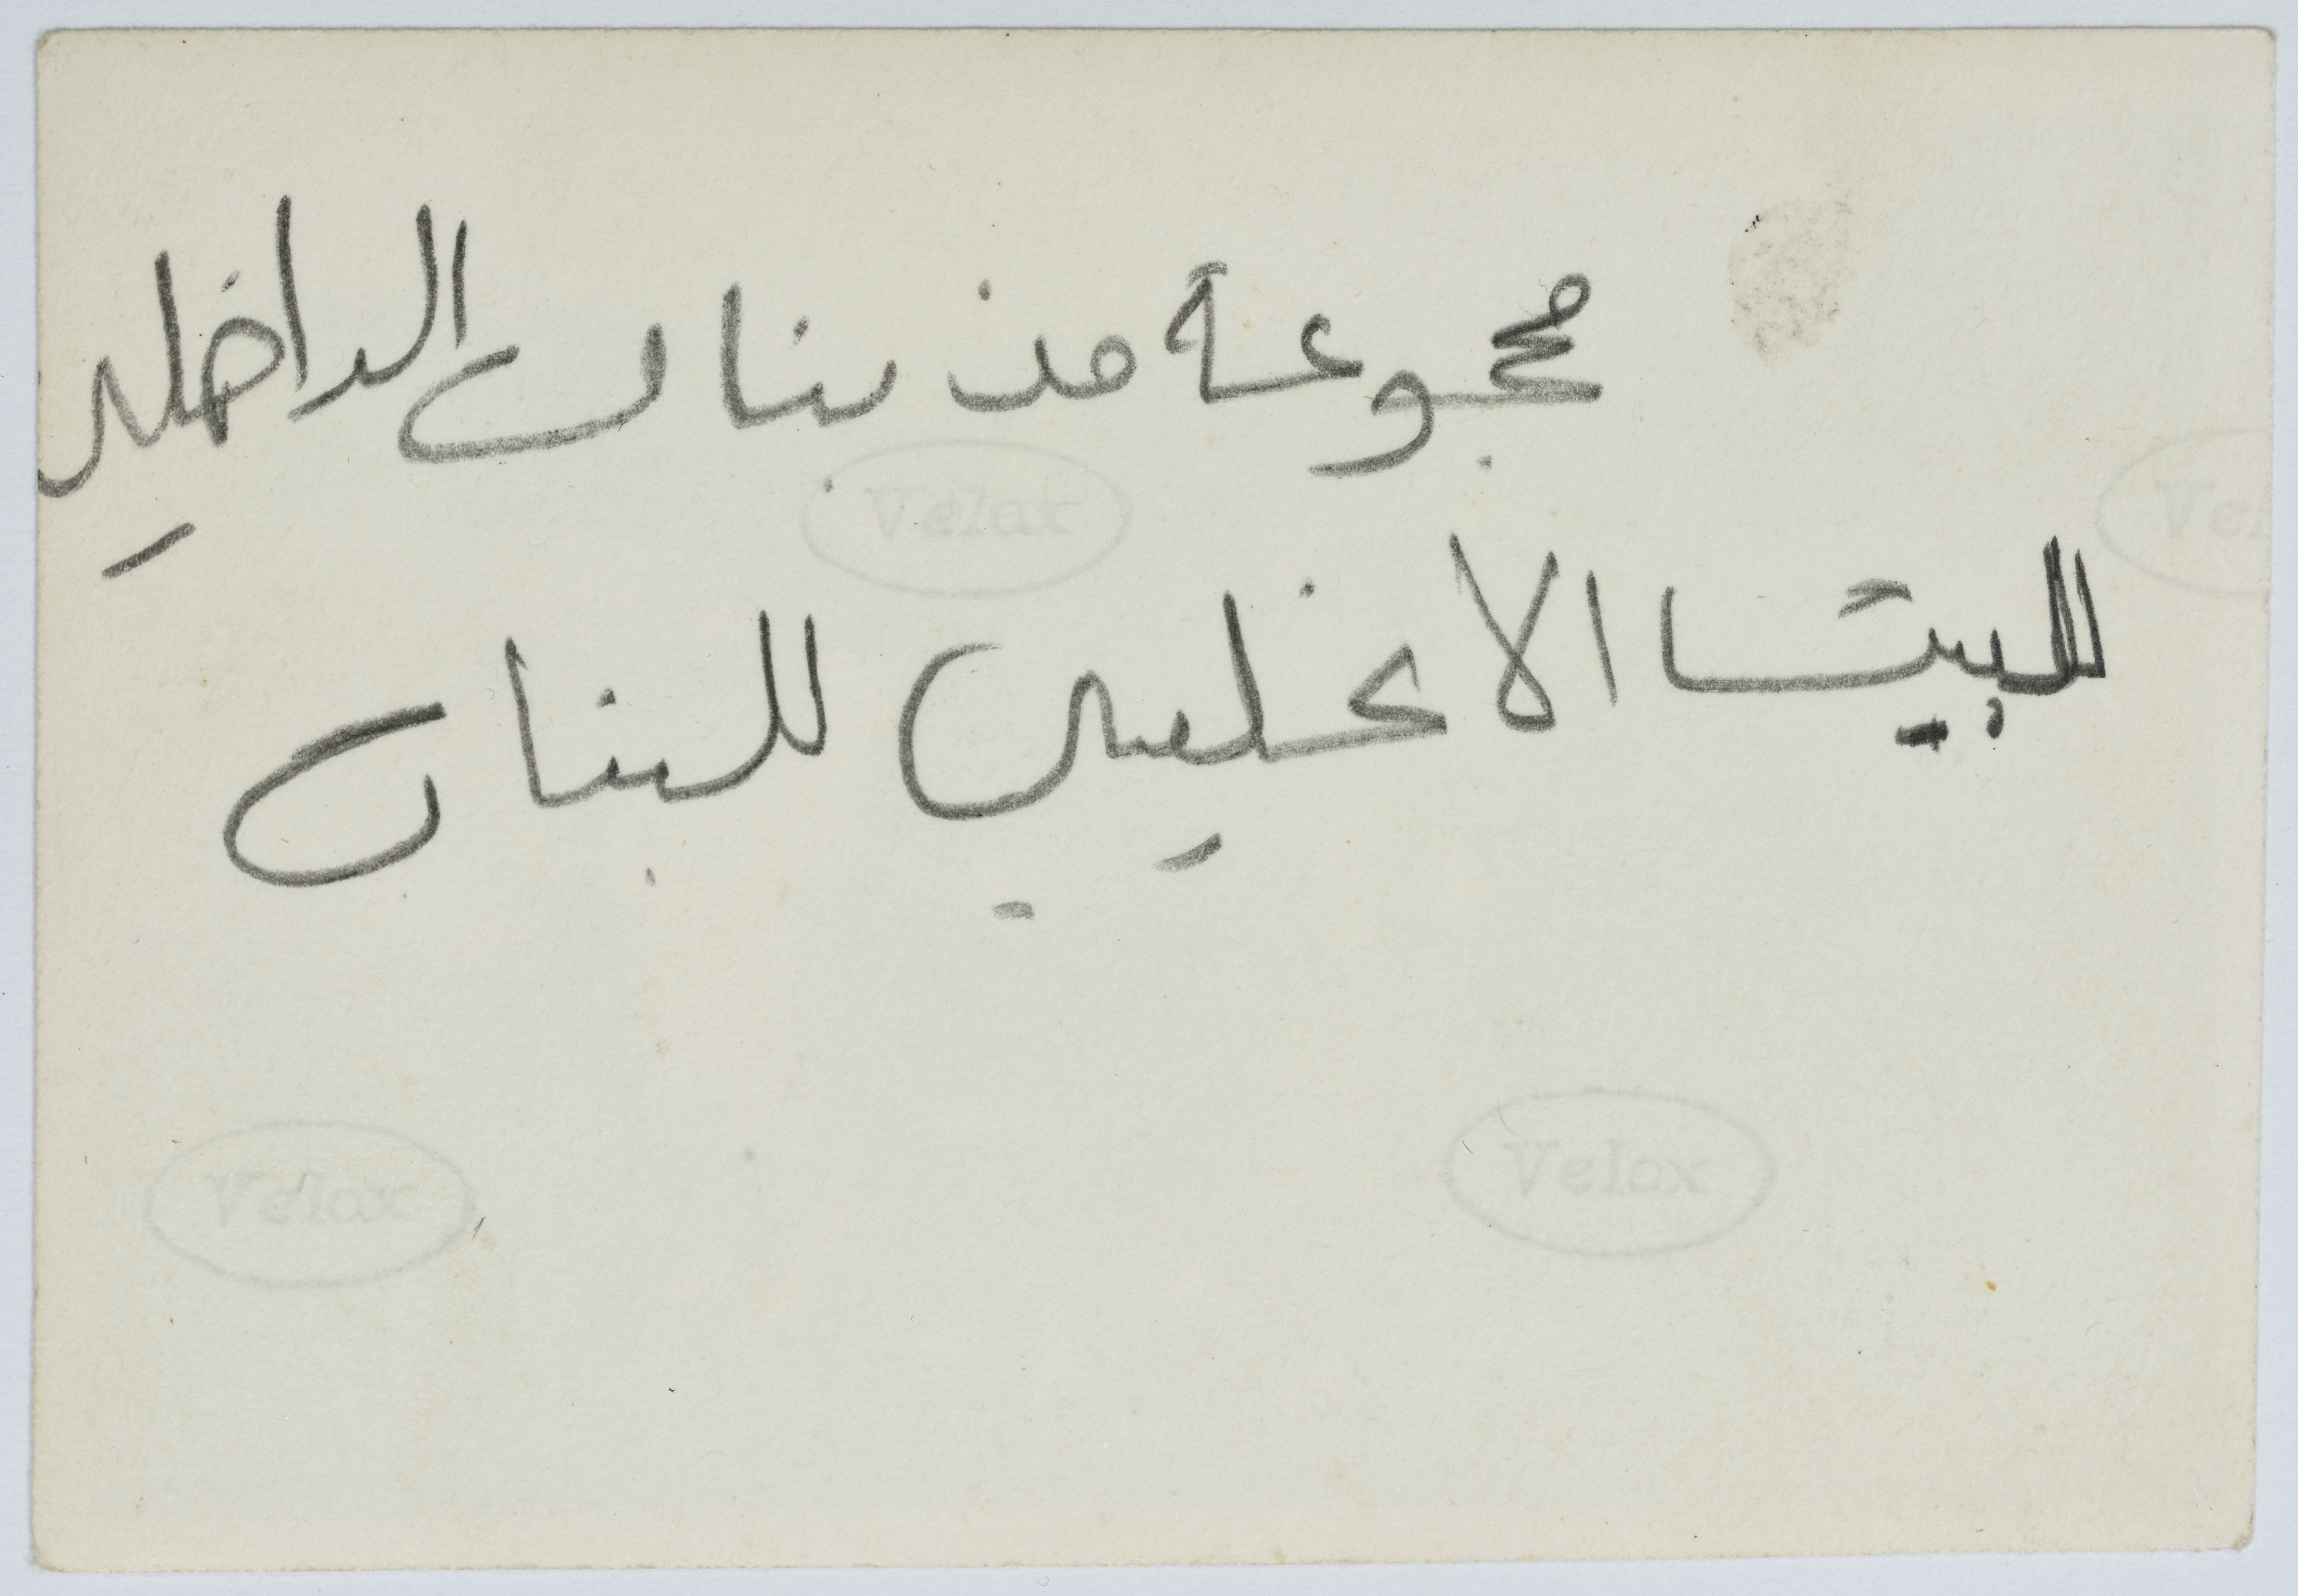 مجموعة من بنات الداخلي
للبيت الانجليي للبنات
Velox
Vel
Velox
Velox